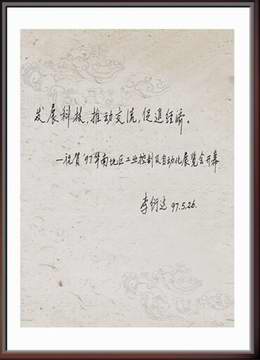 发展科技,推动交流,促进经济。
—祝贺'97华南地区工业控制及自动化展览会开幕
李衍达 97.5.26.